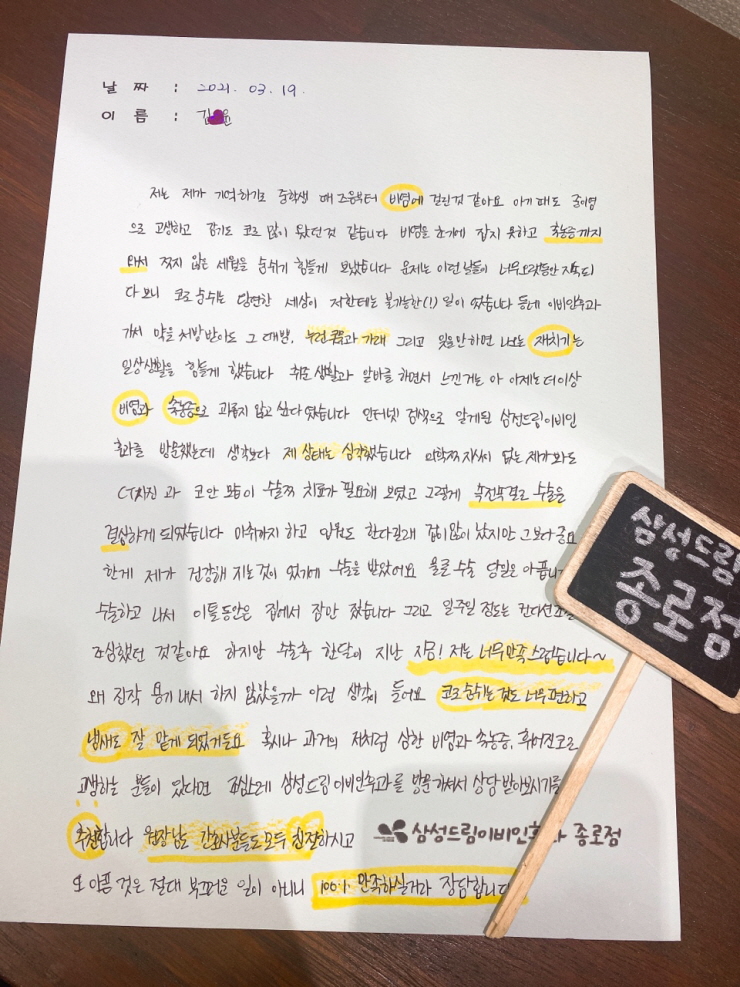 날 짜 : 2021. 03. 19.
이 름 : 김 윤
저는 제가 기억하기로 중학생 때 즈음부터 비염에 걸린것 같아요 아기 때도 중이염
으로 고생하고 감기도 코로 많이 왔던것 같습니다 비염을 초기에 잡지 못하고 축농증까지
돼서 적지 않은 세월을 숨쉬기 힘들게 보냈습니다 문제는 이런 날들이 너무오랫동안 지속되
다 보니 코로 숨쉬는 당연한 세상이 저한테는 불가능한(!) 일이 었습니다 동네 이비인후과
가서 약을 처방 받아도 그 때뿐, 누런 콧물과 가래 그리고 잊을만하면 나오는 재치기는
일상생활을 힘들게 했습니다 취준 생활과 알바를 하면서 느낀거는 아 이제는 더이상
비염과 축농증으로 괴롭지 않고 싶다 였습니다 인터넷 검색으로 알게된 삼성드림이비인
후과를 방문했는데 생각보다 제 상태는 심각했습니다 의학적 지식이 없는 제가 봐도
CT사진 과 코 안 모습이 수술적 치료가 필요해 보였고 그렇게 속전속결로 수술을
결심하게 되었습니다 마취까지 하고 입원도 한다길래 겁이많이 났지만 그보다 중요
한게 제가 건강해 지는것이 었기에 수술을 받았어요 물론 수술 당일은 아픕니
수술하고 나서 이틀동안은 집에서 잠만 잤습니다 그리고 일주일 정도는 컨디션
조심했던 것같아요 하지만 수술후 한달이 지난 지금! 저는 너무만족스럽습니다~
왜 진작 용기 내서 하지 않았을까 이런 생각이 들어요 코로 숨쉬는 것도 너무 편하고
냄새도 잘 맡게 되었거든요 혹시나 과거의 저처럼 심한 비염과 축농증, 휘어진코로
고생하는 분들이 있다면 조심스레 삼성드림이비인후과를 방문 가셔서 상담 받아보시기를
추천합니다 원장님도 간호사분들도 모두 친절하시고
삼성드림이비인후과 종로점
또 아픈 것은 절대 부끄러운 일이 아니니 100% 만족하실거라 장담합니다
삼성드림
종로점